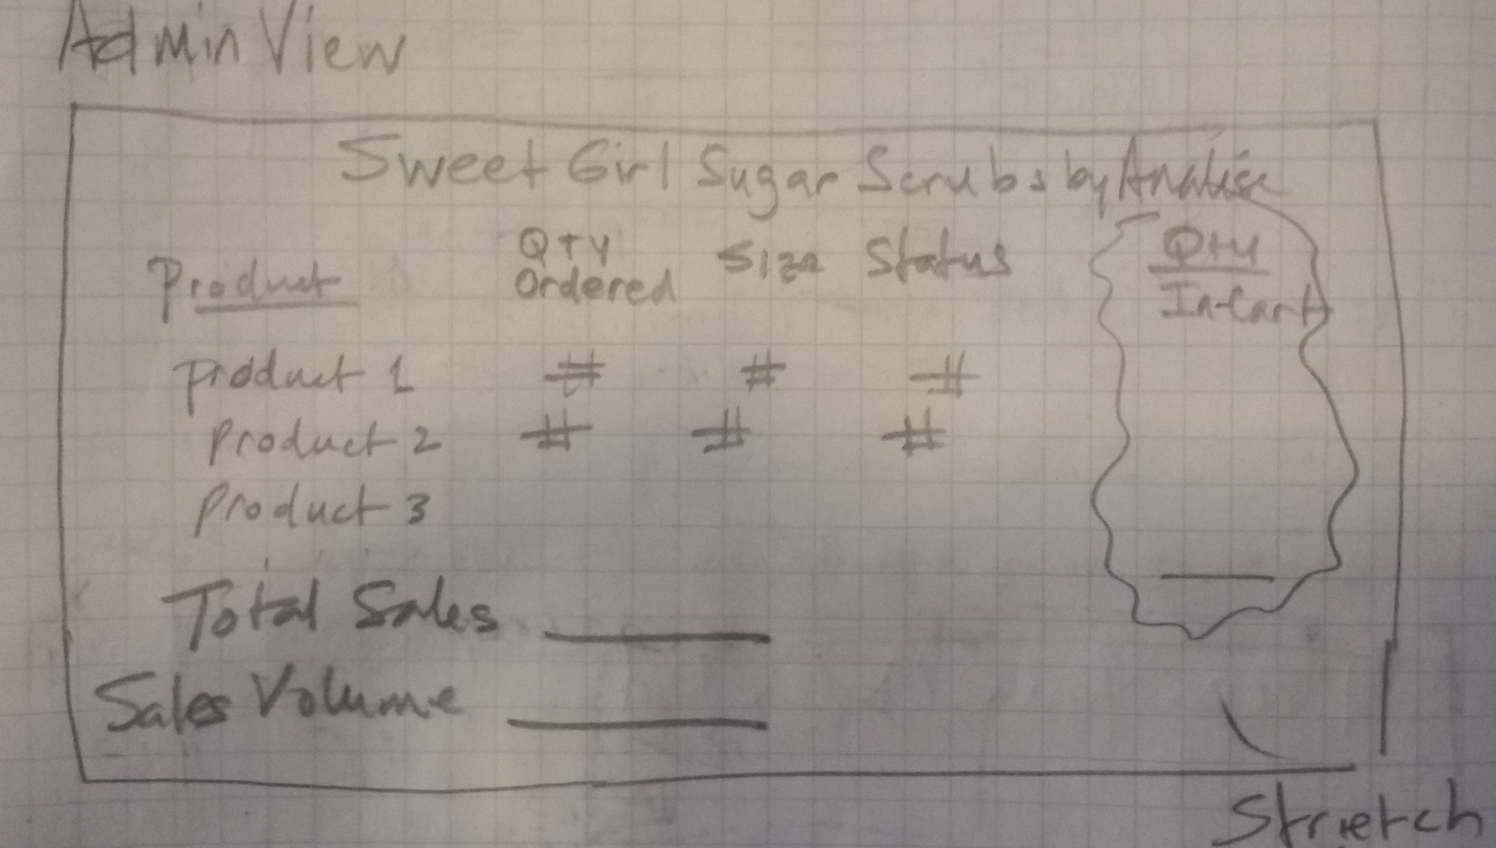 Admin View
Sweet Girl Sugar Scrubs by Analise
Product Qty Ordered Size Status Qty In-Cart
Product 1 # # #
Product 2 # # #
Product 3
Total Sales
Sales Volume
Stretch